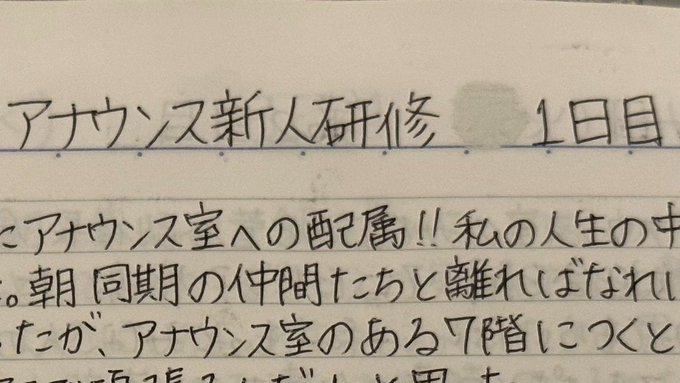 アナウンス新人研修 1日目
にアナウンス室への配属!!私の人生の中
。朝同期の仲間たちと離ればなれに
ったが、アナウンス室のある7階につくと
と思った